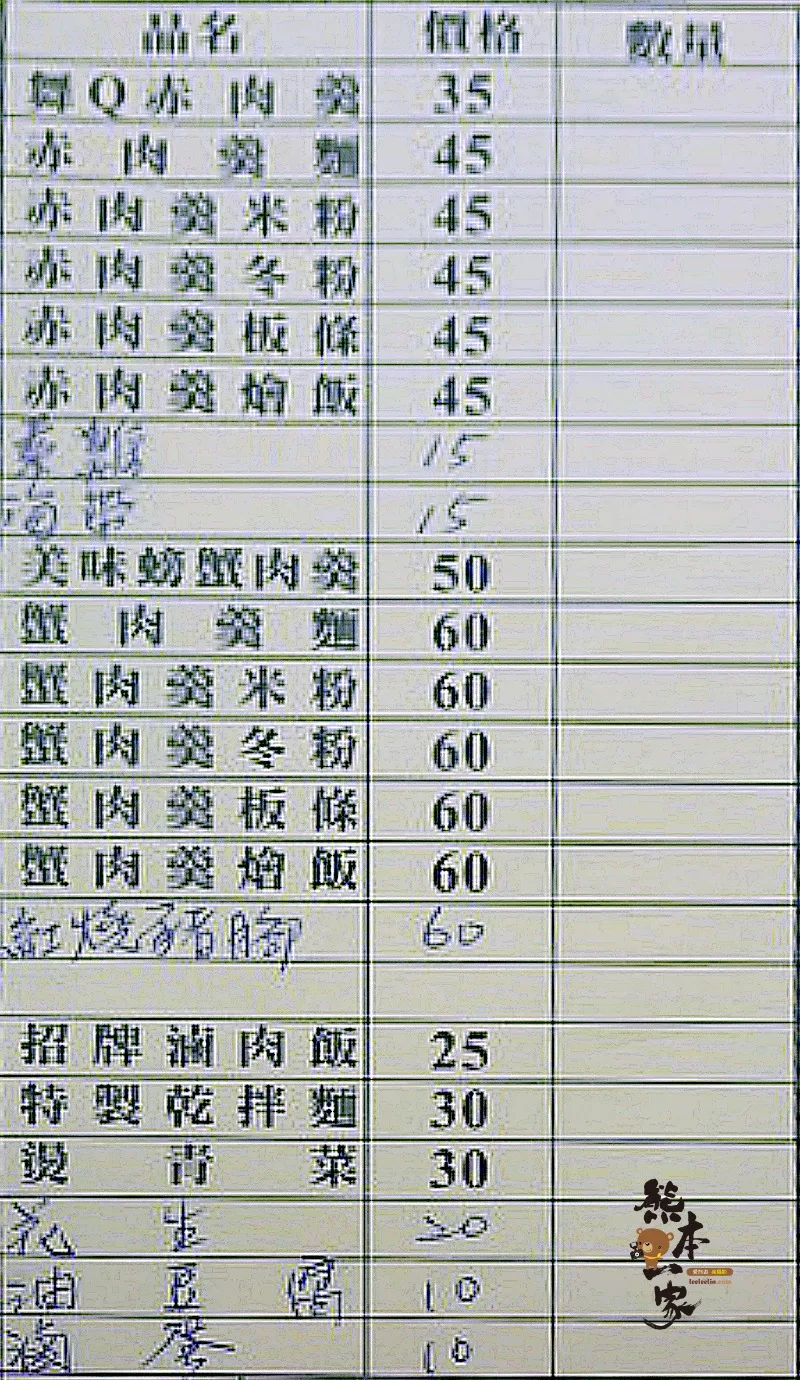 品名 價格 數量
彈Q赤肉羹 35
赤肉羹麵 45
赤肉羹米粉 45
赤肉羹冬粉 45
赤肉羹板條 45
赤肉羹燴飯 45
素雞 15
海帶 15
美味螃蟹肉羹 50
蟹肉羹麵 60
蟹肉羹米粉 60
蟹肉羹冬粉 60
蟹肉羹板條 60
蟹肉羹燴飯 60
紅燒豬腳 60
招牌滷肉飯 25
特製乾拌麵 30
燙青菜 30
花生 20
油豆腐 10
滷蛋 10
熊本一家